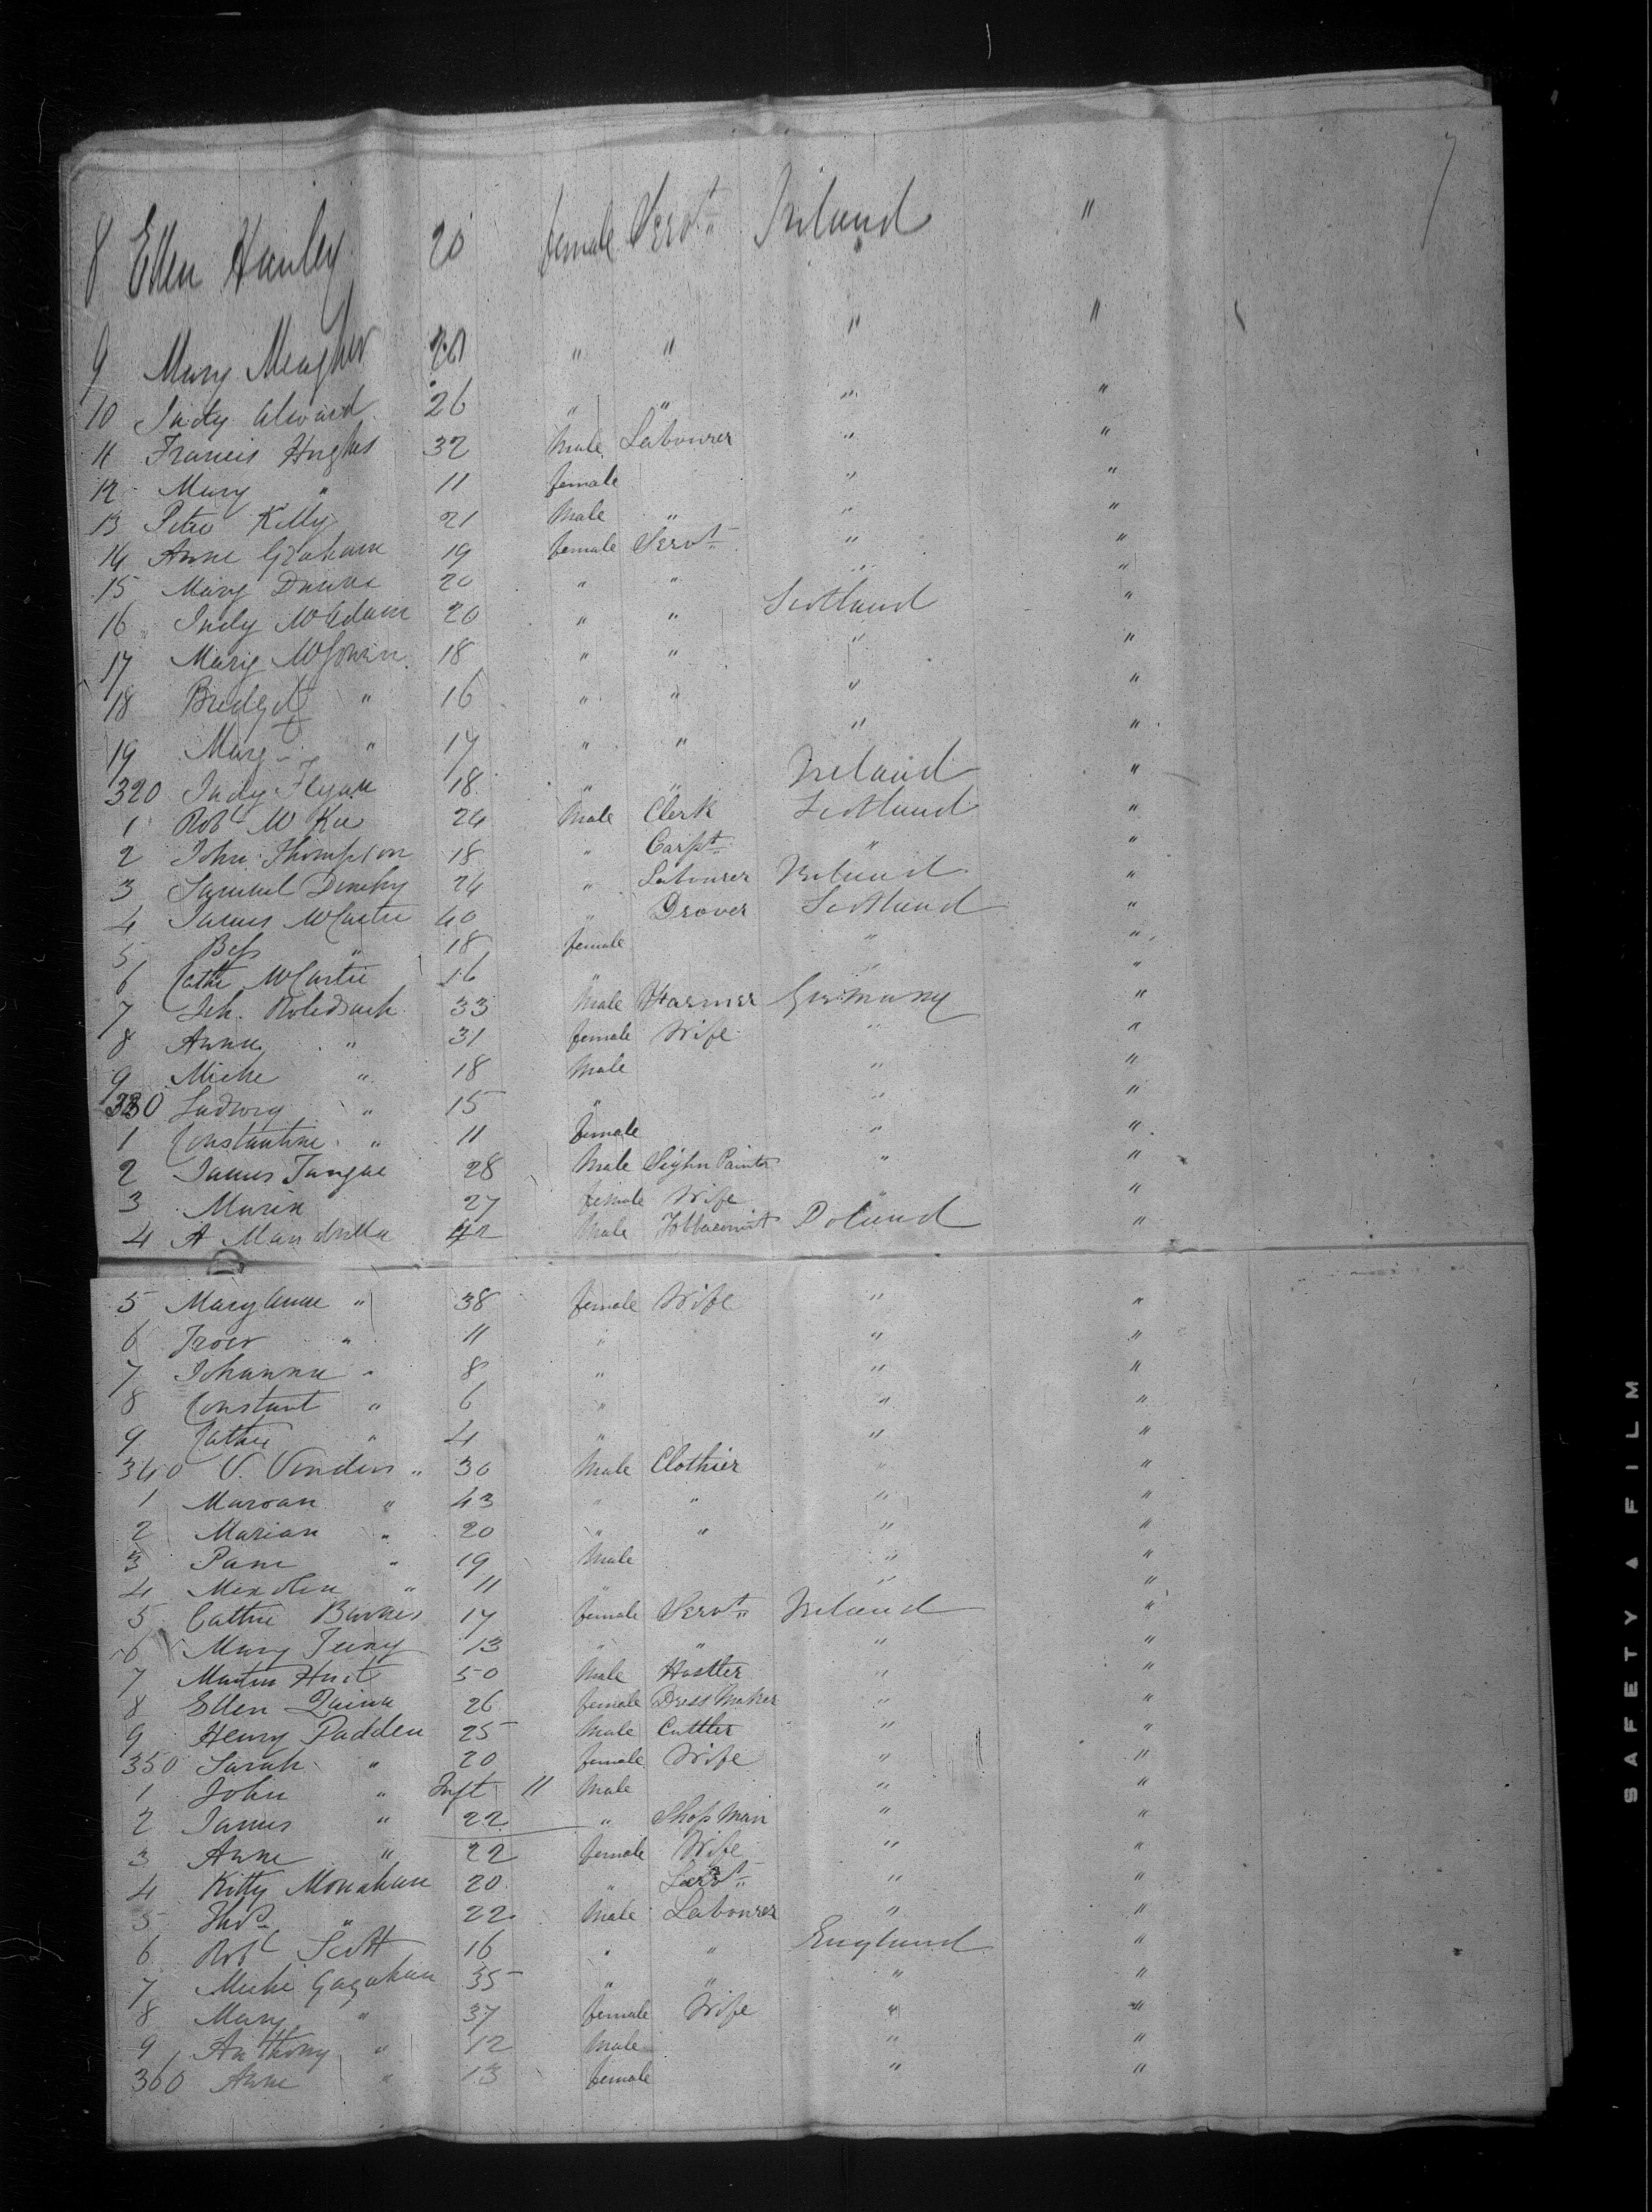 7
8 Ellen Hanley 20 female Servt Ireland "
9 Mary Meagher 20 " " " "
10 Judy 26 " " " "
11 Francis Hughes 32 Male Labourer " "
12 Mary " 11 female " "
13 Peter Kelly 21 Male " " "
14 Anne Graham 19 female Servt " "
15 Mary Dunne 20 " " " "
16 Judy McAdam 20 " " Scotland "
17 Mary McGowen 18 " " " "
18 Bridget " 16 " " " "
19 Mary " 17 " " " "
320 Judy Flynn 18 " " Ireland "
1 Robt McKee 24 Male Clerk Scotland "
2 John Thompson 18 " Carpt " "
3 Samuel 24 " Labourer Ireland "
4 James McCartie 40 " Drover Scotland "
5 Bess " 18 female " "
6 Cathe McCartie 16 " " "
7 Joh. 33 Male Farmer Germany "
8 Anna " 31 female Wife " "
9 Miche " 18 Male " "
330 Ludwig " 15 " " "
1 Constantine " 11 female " "
2 James 28 Male Sighn Painter " "
3 Maria 27 female Wife " "
4 A Mandrilla 42 Male Tobbaconist Poland "
5 Mary Anne " 38 female Wife " "
6 " 11 " " "
7 Johanna " 8 " " "
8 Constant " 6 " " "
9 Cathe " 4 " " "
340 V. " 30 Male Clothier " "
1 Maroan " 43 " " " "
2 Marian " 20 " " " "
3 " 19 Male " "
4 " 11 " " "
5 Cathe Barnes 17 female Servt Ireland "
6 Mary 13 " " " "
7 Martin Hunt 50 Male Hostler " "
8 Ellen Quinn 26 female Dress Maker " "
9 Henry Padden 25 Male Cuttler " "
350 Sarah " 20 female Wife " "
1 John " Inft 11 Male " "
2 James " 22 " Shop Man " "
3 Anne " 22 female Wife " "
4 Kitty Monahan 20 " Servt " "
5 Thos " 22 Male Labourer " "
6 Robt Scott 16 " " England "
7 Miche Gagahan 35 " " " "
8 Mary " 37 female Wife " "
9 Anthony " 12 Male " "
360 Anne " 13 female " "
SAFETY ▲ FILM